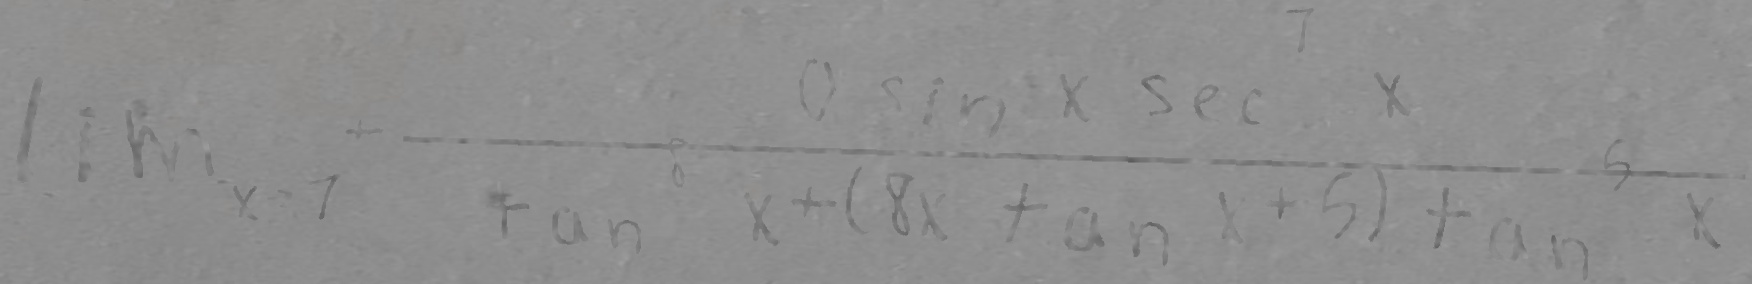 lim x→7⁺ (0 sin x sec⁷ x) / (tan⁸ x + (8x tan x + 5) tan⁵ x)